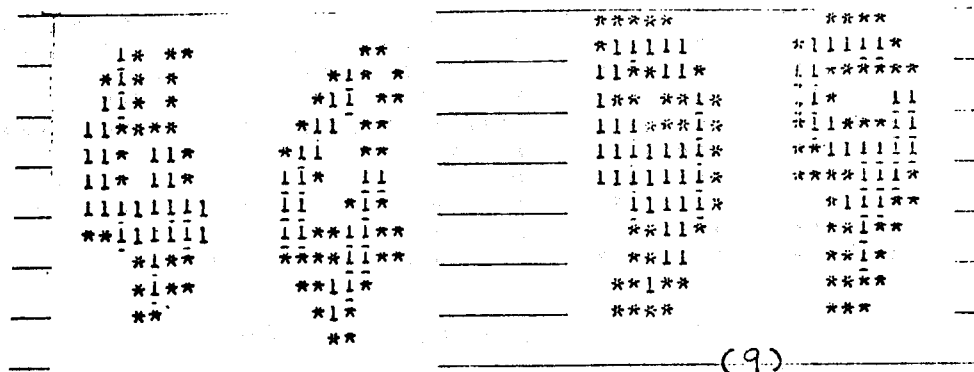 1* **
*1* *
11* *
11****
11* 11*
11* 11*
11111111
**111111
*1**
*1**
**
**
*1* *
*11 **
*11 **
*11 **
11* 11
11 *11
11**11**
****11**
**11*
*1*
**
*****
*11111
11**11*
1** **1*
111***1*
1111111*
1111111*
11111*
**11*
**11
**1**
****
****
*11111*
11******
11* 11
*11***11
**111111
****111*
**11**
**1**
**1*
****
***
(9)